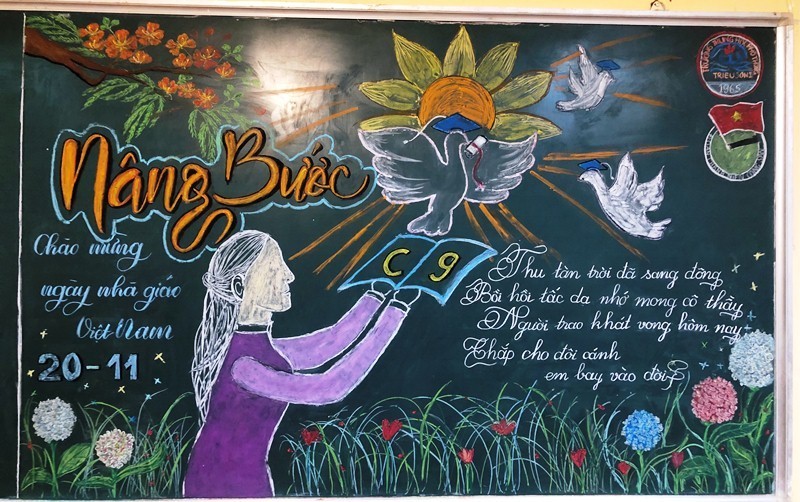 TRIỆU SƠN 2
1965
Nâng Bước
Chào mừng
ngày nhà giáo
Việt Nam
20-11
C 9
Thu tàn trời đã sang đông
Bồi hồi tấc dạ nhớ mong cô thầy
Người trao khát vọng hôm nay
Chắp cho đôi cánh
em bay vào đời